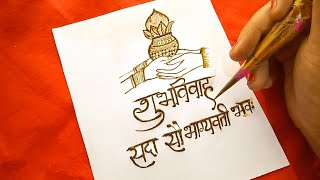 शुभविवाह
सदा सौभाग्यवती भवः